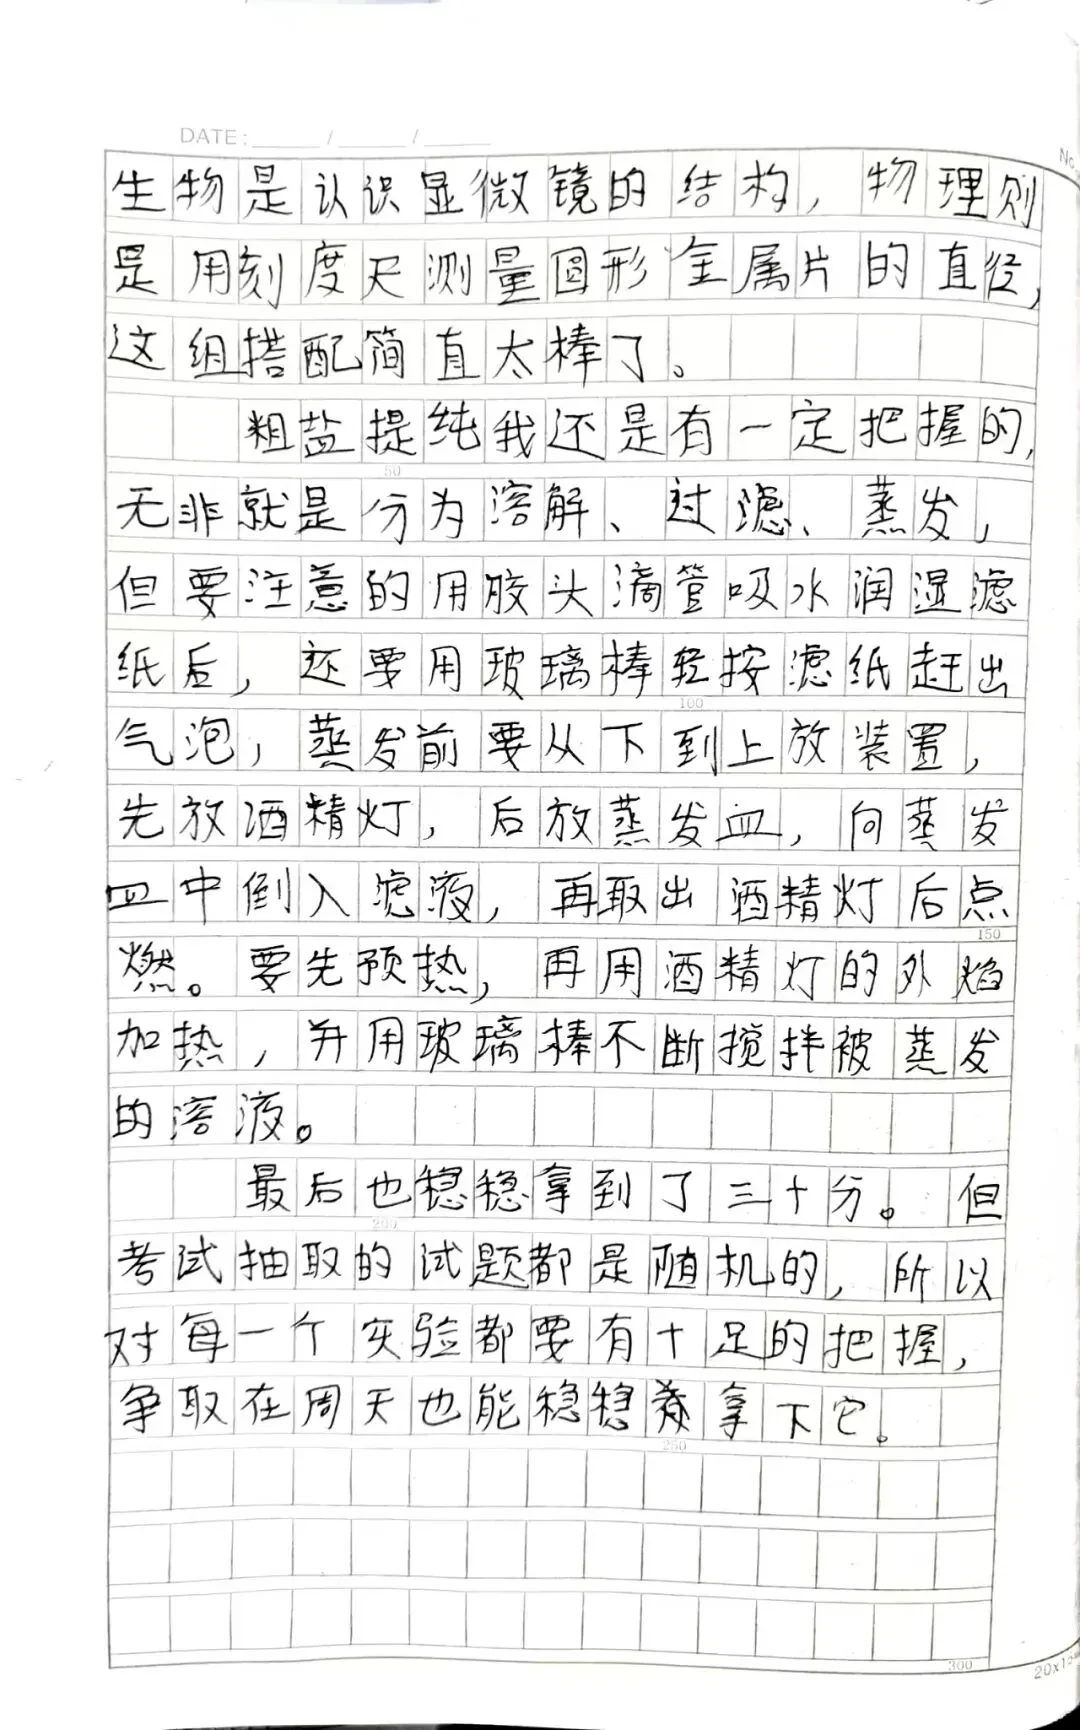 DATE: / /
No
生物是认识显微镜的结构，物理则
是用刻度尺测量圆形金属片的直径，
这组搭配简直太棒了。
粗盐提纯我还是有一定把握的，
50
无非就是分为溶解、过滤、蒸发，
但要注意的用胶头滴管吸水润湿滤
纸后，还要用玻璃棒轻按滤纸赶出
100
气泡，蒸发前要从下到上放装置，
先放酒精灯，后放蒸发皿，向蒸发
皿中倒入滤液，再取出酒精灯后点
150
燃。要先预热，再用酒精灯的外焰
加热，并用玻璃棒不断搅拌被蒸发
的溶液。
最后也稳稳拿到了三十分。但
200
考试抽取的试题都是随机的，所以
对每一个实验都要有十足的把握，
争取在周天也能稳稳拿下它。
250
300